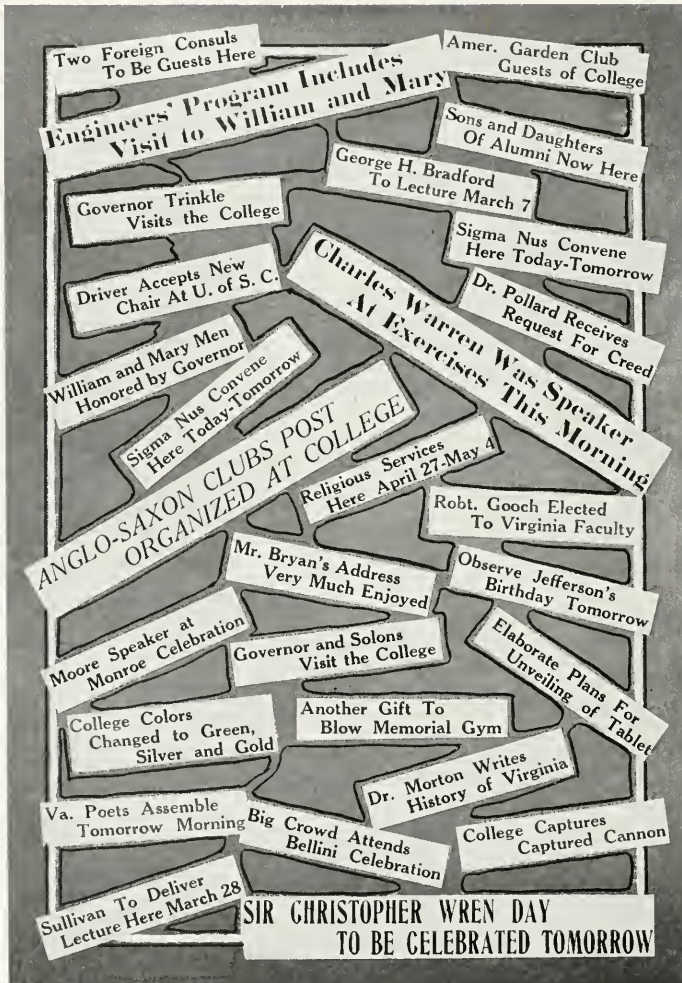 Two Foreign Consuls
To Be Guests Here
Amer. Garden Club
Guests of College
Engineers' Program Includes
Visit to William and Mary
Sons and Daughters
Of Alumni Now Here
George H. Bradford
To Lecture March 7
Governor Trinkle
Visits the College
Sigma Nus Convene
Here Today-Tomorrow
Driver Accepts New
Chair At U. of S. C.
Charles Warren Was Speaker
At Exercises This Morning
Dr. Pollard Receives
Request For Creed
William and Mary Men
Honored by Governor
Sigma Nus Convene
Here Today-Tomorrow
ANGLO-SAXON CLUBS POST
ORGANIZED AT COLLEGE
Religious Services
Here April 27-May 4
Robt. Gooch Elected
To Virginia Faculty
Mr. Bryan's Address
Very Much Enjoyed
Observe Jefferson's
Birthday Tomorrow
Moore Speaker at
Monroe Celebration
Governor and Solons
Visit the College
Elaborate Plans For
Unveiling of Tablet
College Colors
Changed to Green,
Silver and Gold
Another Gift To
Blow Memorial Gym
Dr. Morton Writes
History of Virginia
Va. Poets Assemble
Tomorrow Morning
Big Crowd Attends
Bellini Celebration
College Captures
Captured Cannon
Sullivan To Deliver
Lecture Here March 28
SIR CHRISTOPHER WREN DAY
TO BE CELEBRATED TOMORROW